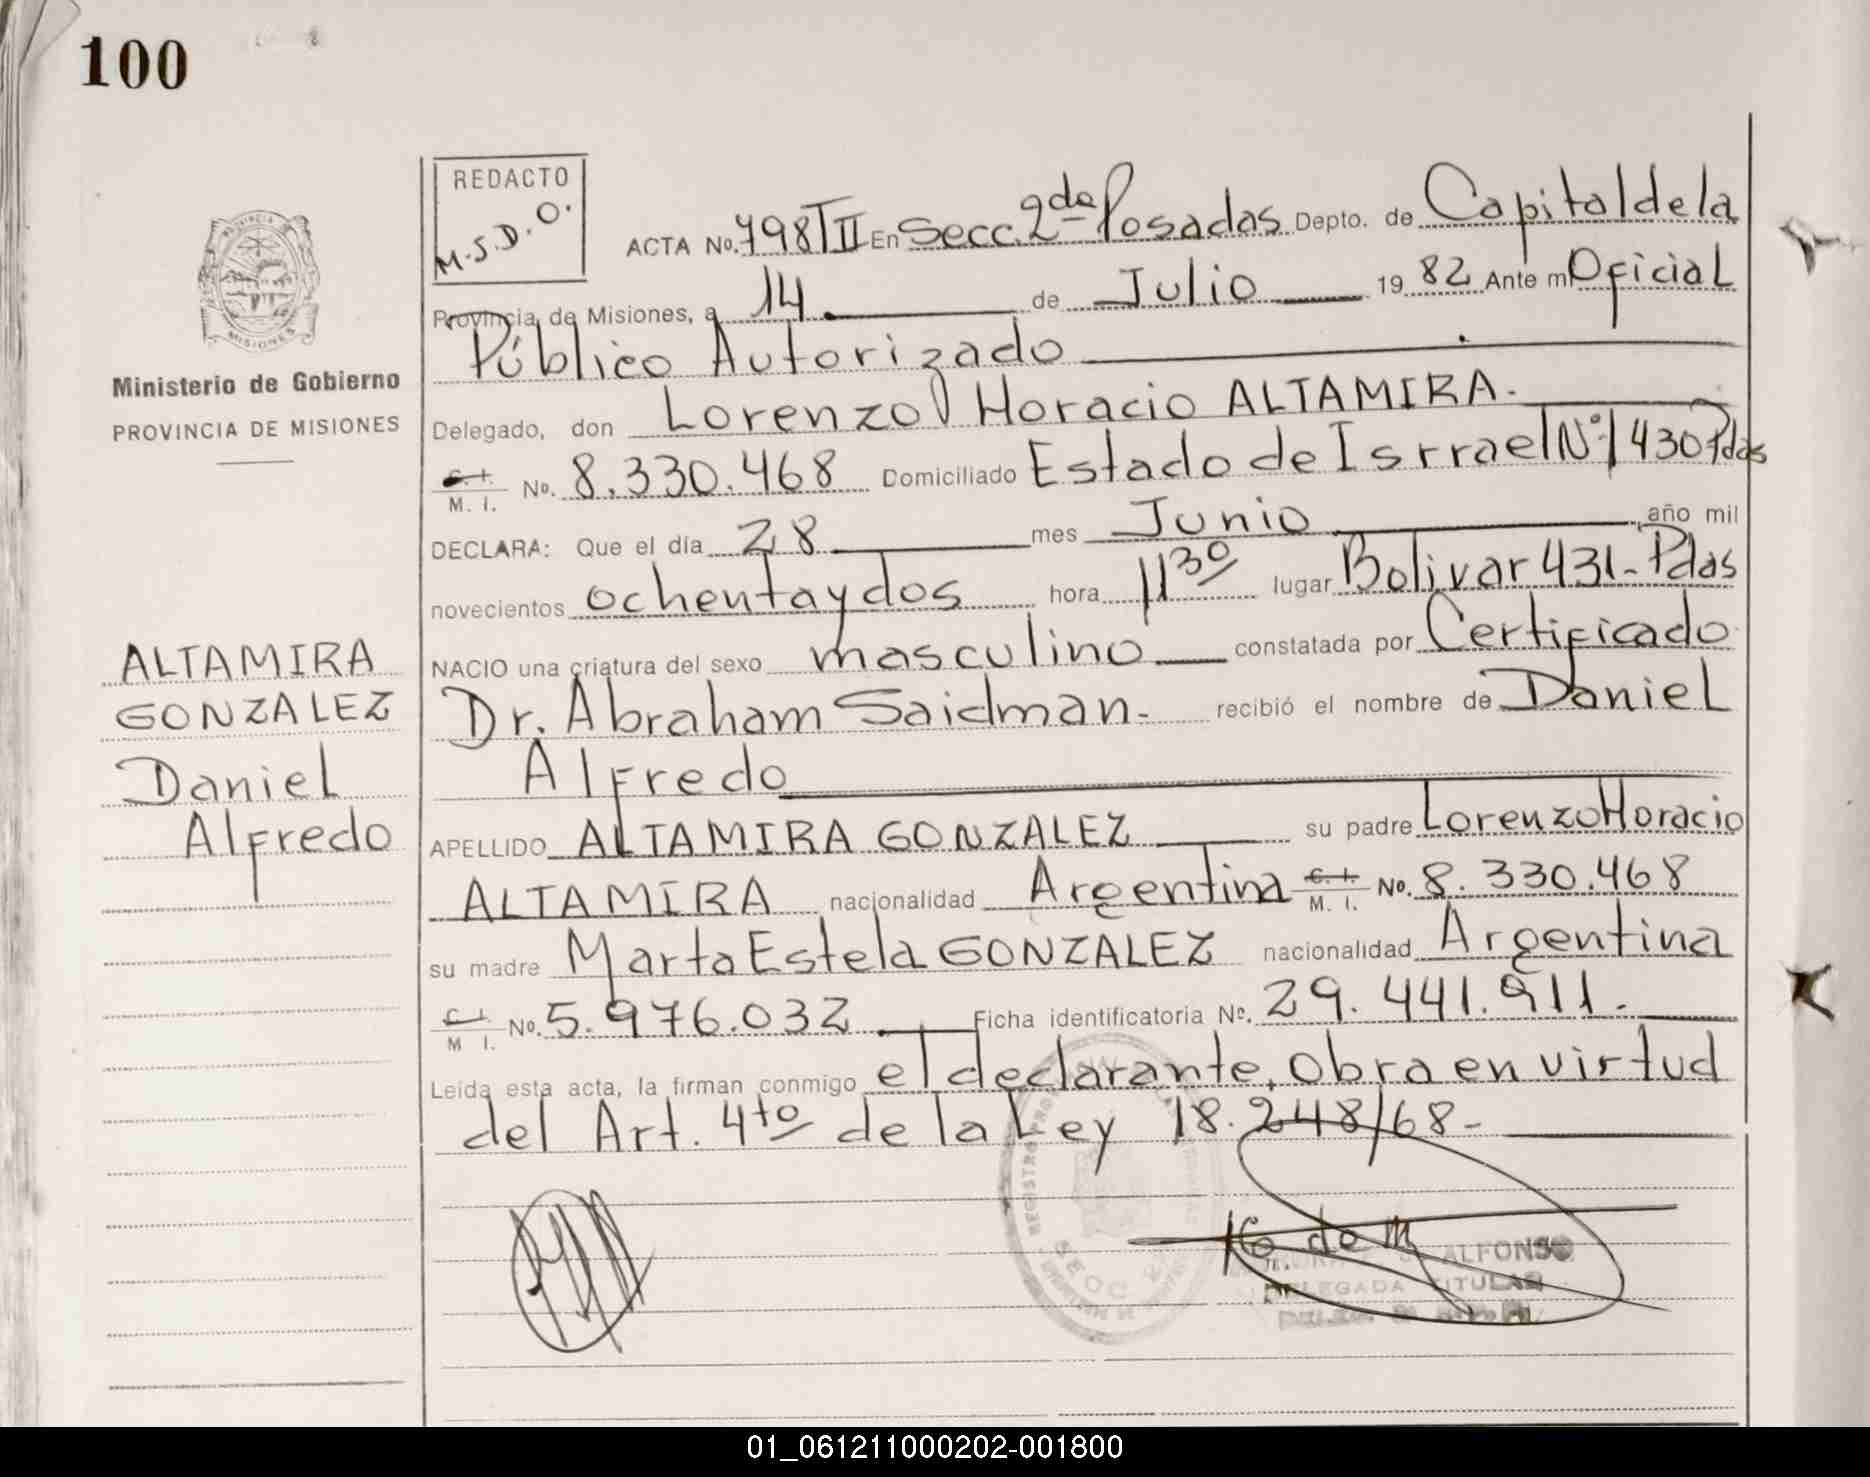 100
REDACTO
M.S.D.O.
ACTA No. 798/TII En Secc. 2da Posadas Depto. de Capital de la
Provincia de Misiones, a 14 de Julio 1982 Ante mi Oficial
Público Autorizado
Delegado, don Lorenzo Horacio ALTAMIRA.
C. I. M. I. No. 8.330.468 Domiciliado Estado de Isrrael Nº 1430 Pdas
DECLARA: Que el día 28 mes Junio año mil
novecientos ochenta y dos hora 11 30 lugar Bolivar 431- Pdas
NACIO una criatura del sexo masculino constatada por Certificado
Dr. Abraham Saidman- recibió el nombre de Daniel
Alfredo
APELLIDO ALTAMIRA GONZALEZ su padre Lorenzo Horacio
ALTAMIRA nacionalidad Argentina C. I. M. I. No. 8.330.468
su madre Marta Estela GONZALEZ nacionalidad Argentina
C. I. M I. No. 5.976.032 Ficha identificatoria No. 29.441.911.
Leída esta acta, la firman conmigo el declarante, Obra en virtud
del Art. 4to de la Ley 18.248/68-
PROVINCIA
MISIONES
Ministerio de Gobierno
PROVINCIA DE MISIONES
ALTAMIRA
GONZALEZ
Daniel
Alfredo
REGISTRO
ALFONSO
DELEGADA TITULAR
01_061211000202-001800